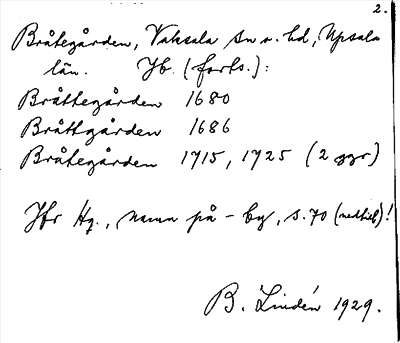 2.
Bråtegården, Vaksala sn o. hd, Upsala
län. Jb. (forts.):
Bråttegården 1680
Bråttgården 1686
Bråtegården 1715, 1725 (2 ggr)
Jfr Hg., namn på -by, s. 70 (nedtill)!
B. Lindén 1929.